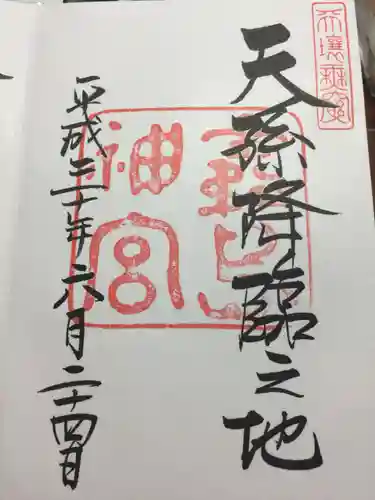 天壌無窮
天孫降臨之地
霧島
神宮
平成三十年六月二十四日